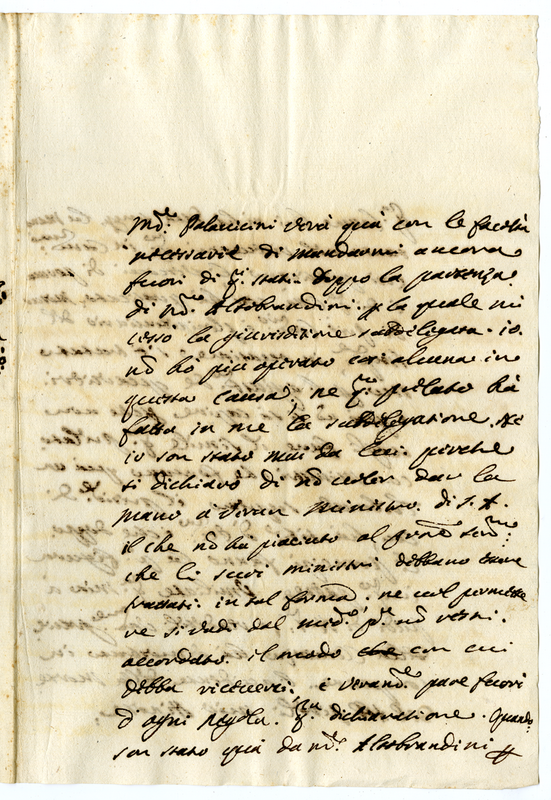 Mons.re Palavicini verà quà con le facoltà
necessarie di mandarmi ancora
fuori di q.ti stati. Doppo la partenza
di m.re Altobrandini. p la quale mi
cessò la giurisditione suddelegata. io
nõ ho più operato cos alcuna in
questa causa, ne q.to prelato hà
fatta in me la subdelegatione. Ne
io son stato mai da lui. perche
si dichiarò di nõ voler dar la
mano à verun Ministro di S. A.
il che nõ hà piaciuto al
che li suoi ministri debbano essere
trattati in tal forma. ne vol permettere
ve si vadi dal med.o p.a nõ resti
accordato il modo con cui
debba riceversi. è veram.te pare fuori
d'ogni regola. q.ta dichiaratione. Quando
son stato quà da m.re Altobrandini